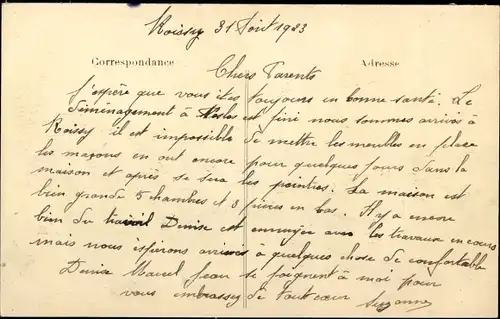 Roissy 31 Août 1923
Correspondance Adresse
Chers Parents
J'espère que vous êtes toujours en bonne santé. Le
déménagement à Nesles est fini nous sommes arrivés à
Roissy il est impossible de mettre les meubles en place
les maçons en ont encore pour quelques jours dans la
maison et après se sera les peintres. La maison est
bien grande 5 chambres et 3 pièces en bas. Il y a encore
bien du travail Denise est ennuyée avec les travaux en cours
mais nous espérons arriver à quelques chose de confortable
Denise Marcel Jean se joignent à moi pour
vous embrasser de tout cœur Suzanne